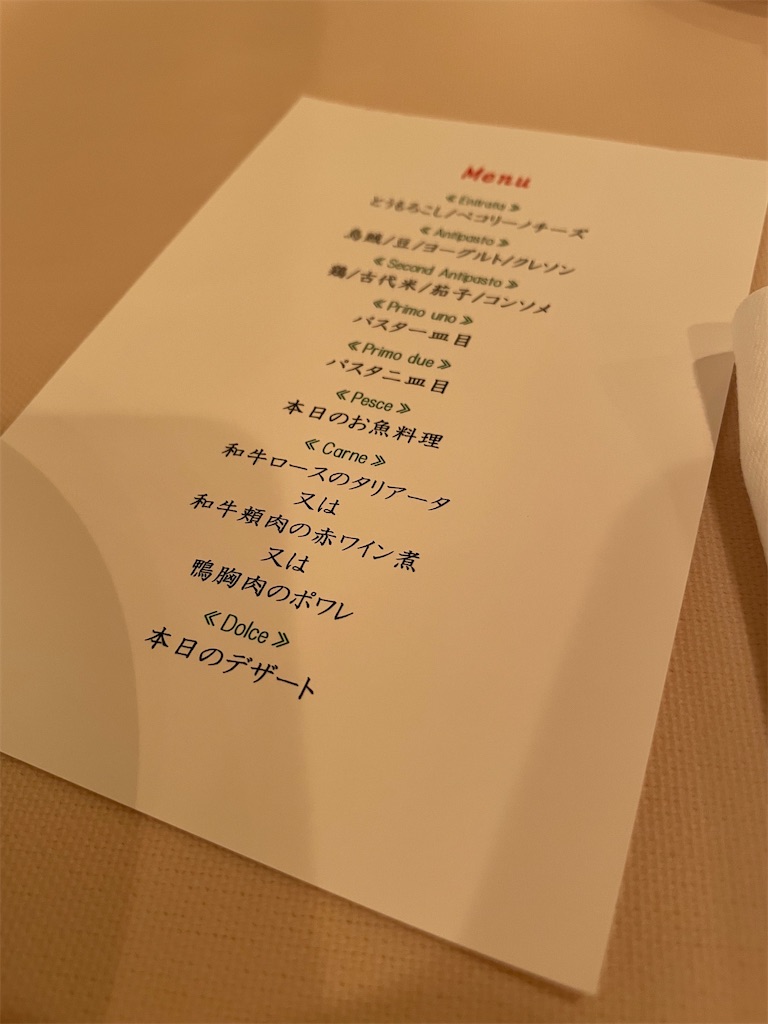 Menu
≪Entrata≫
とうもろこし/ペコリーノチーズ
≪Antipasto≫
烏賊/豆/ヨーグルト/クレソン
≪Second Antipasto≫
鶏/古代米/茄子/コンソメ
≪Primo uno≫
パスタ一皿目
≪Primo due≫
パスタ二皿目
≪Pesce≫
本日のお魚料理
≪Carne≫
和牛ロースのタリアータ
又は
和牛頬肉の赤ワイン煮
又は
鴨胸肉のポワレ
≪Dolce≫
本日のデザート